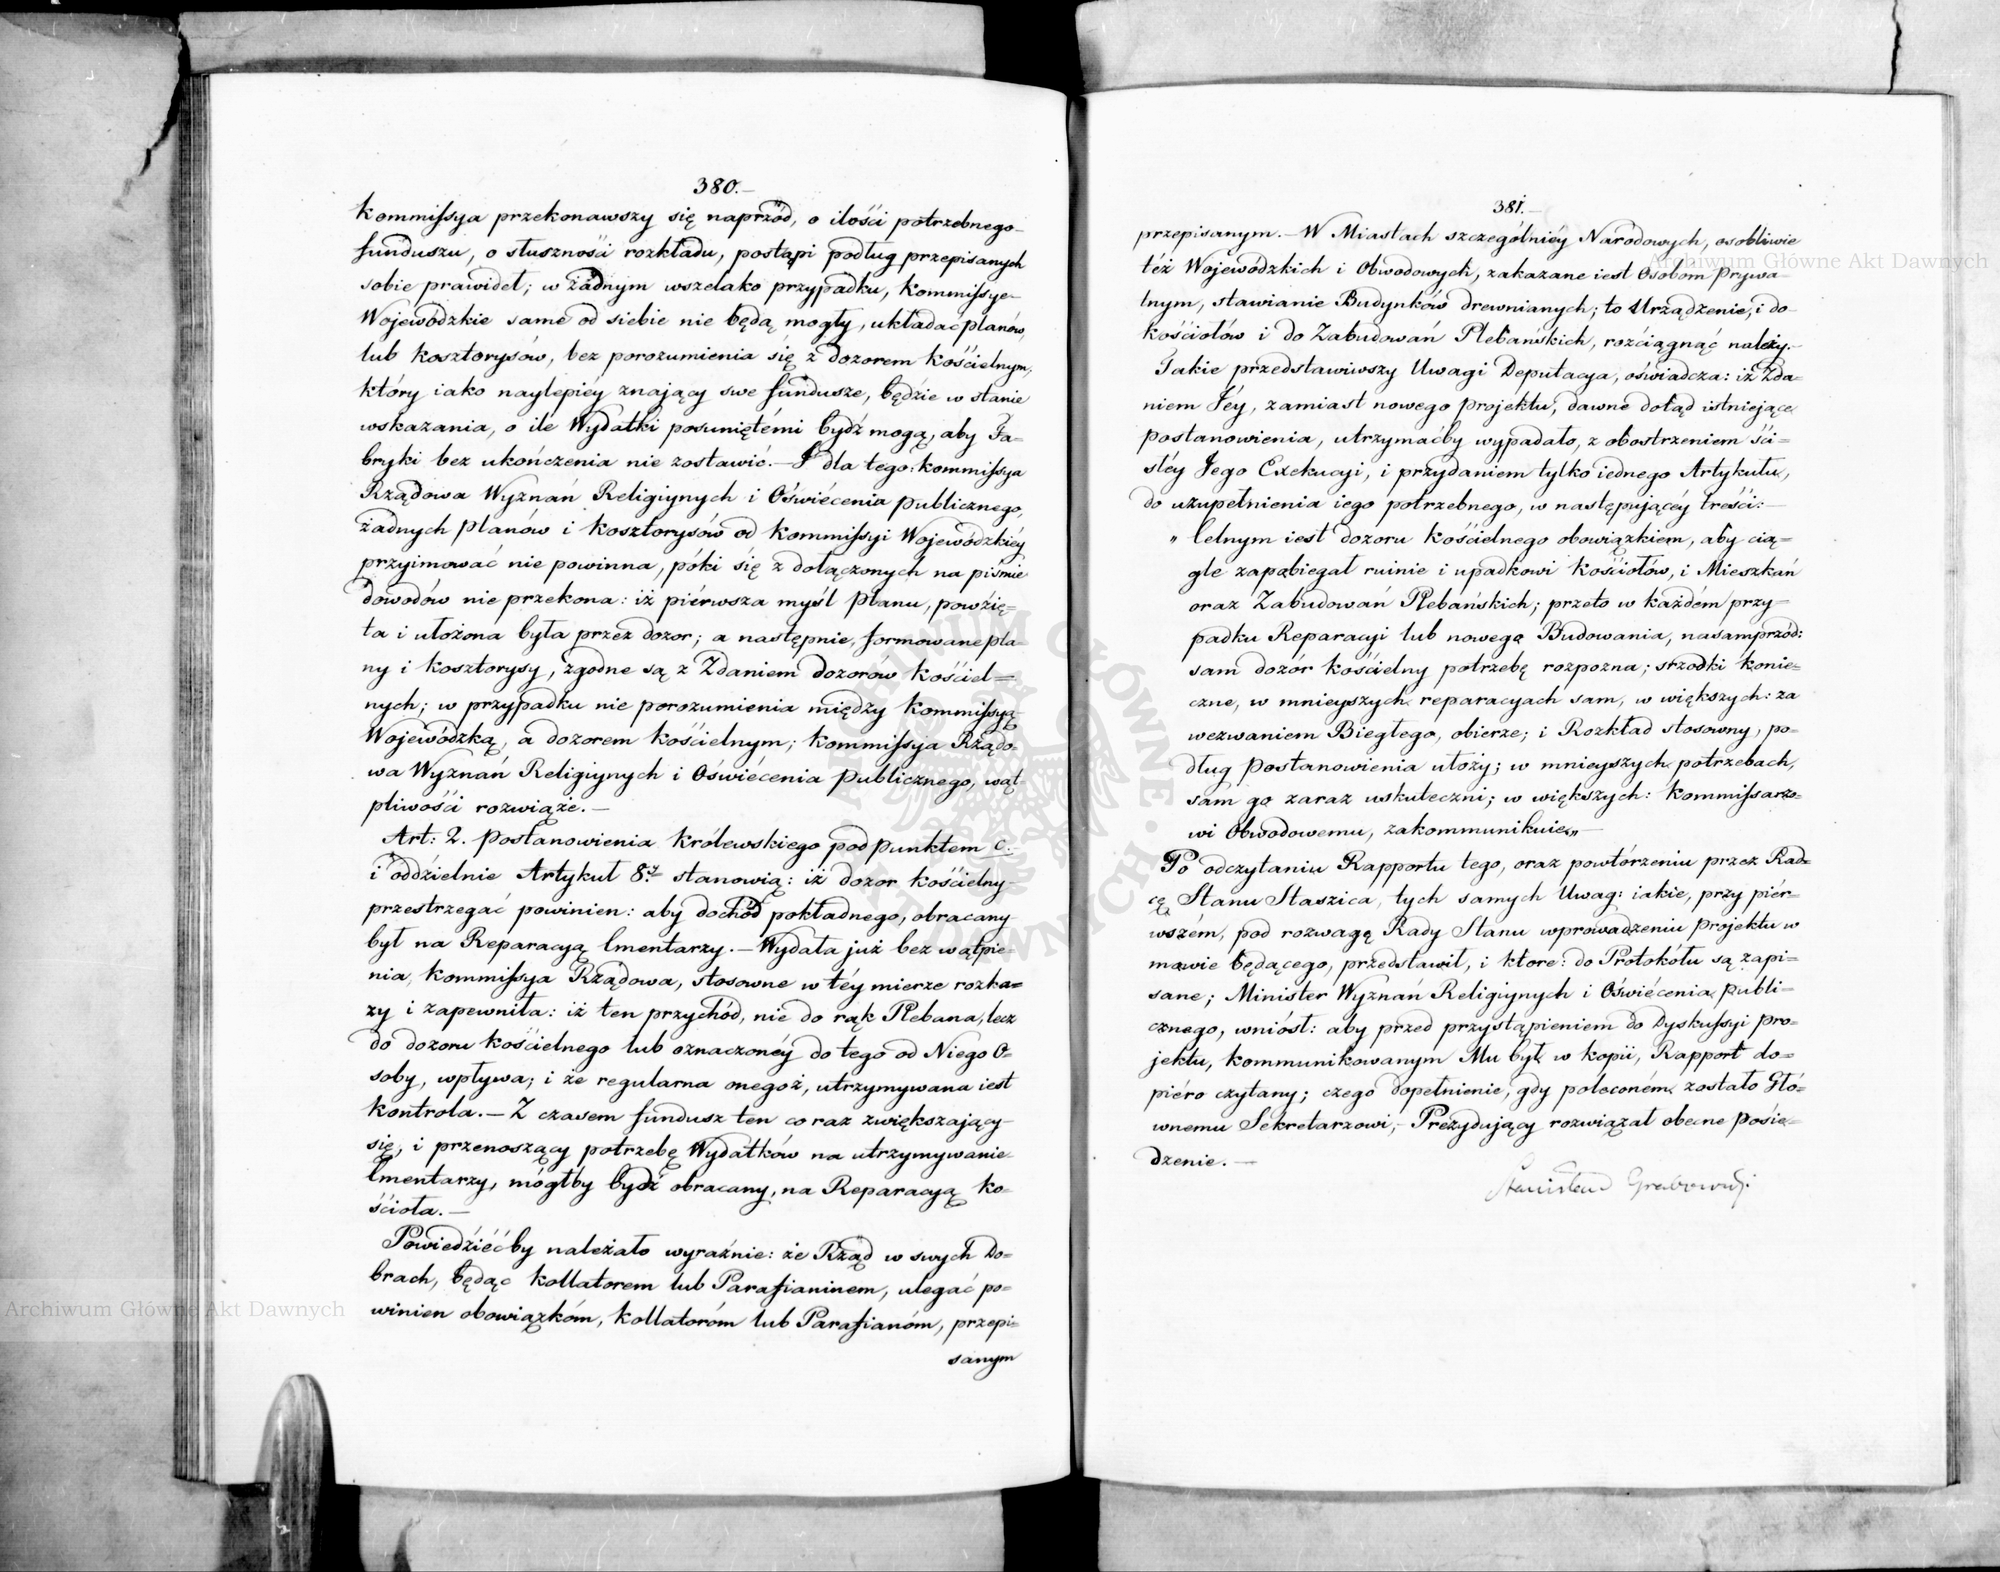 380.—
Kommissya przekonawszy się naprzód, o ilości potrzebnego
funduszu, o słuszności rozkładu, postąpi podług przepisanych
sobie prawideł; w żadnym wszelako przypadku, Kommissye
Wojewódzkie same od siebie nie będą mogły, układać planów,
lub kosztorysów, bez porozumienia się z dozorem kościelnym,
który iako naylepiéy znaiący swe fundusze, będzie w stanie
wskazania, o ile Wydatki posuniętémi bydź mogą, aby Fa-
bryki bez ukończenia nie zostawić.— I dla tego: Kommissya
Rządowa Wyznań Religiynych i Oświécenia publicznego,
żadnych planów i kosztorysów od Kommissyi Wojewódzkiéy
przyimować nie powinna, póki się z dołączonych na piśmie
dowodów nie przekona: iż piérwsza myśl planu, powzię=
ta i ułożona była przez dozor; a następnie, formowane pla-
ny i kosztorysy, zgodne są z Zdaniem dozorów Kościel=
nych; w przypadku nie porozumienia między Kommissyą
Wojewódzką, a dozorem kościelnym; Kommissya Rządo-
wa Wyznań Religiynych i Oświécenia publicznego, wąt-
pliwości rozwiąże.—
Art: 2. postanowienia Królewskiego pod punktem c.
i oddzielnie Artykuł 8.y stanowią: iż dozor kościelny
przestrzegać powinien: aby dochód pokładnego, obracany
był na Reparacyą Cmentarzy.— Wydała już bez wątpie-
nia, Kommissya Rządowa, stosowne w téy mierze rozka=
zy i zapewniła: iż ten przychód, nie do rąk Plebana, lecz
do dozoru kościelnego lub oznaczonéy do tego od Niego O-
soby, wpływa; i że regularna onegoż, utrzymywana iest
kontrola.— Z czasem fundusz ten coraz zwiększający
się, i przenoszący potrzebę Wydatków na utrzymywanie
Cmentarzy, mógłby bydź obracany, na Reparacyą Ko-
ścioła.—
Powiedziéćby należało wyraźnie: że Rząd w swych Do=
brach, będąc Kollatorem lub Parafianinem, ulegać po-
winien obowiązkóm, Kollatoróm lub Parafianóm, przepi=
sanym
381.—
przepisanym.— W Miastach szczególniéy Narodowych, osobliwie
też Wojewódzkich i Obwodowych, zakazane iest Osobom Prywa-
tnym, stawianie Budynków drewnianych; to Urządzenie, i do
kościołów i do Zabudowań Plebańskich, rozciągnąć należy.—
Takie przedstawiwszy Uwagi Deputacya, oświadcza: iż Zda-
niem Jéy, zamiast nowego projektu, dawne dotąd istniejące
postanowienia, utrzymaćby wypadało, z obostrzeniem ści=
słéy Jego Exekucyi, i przydaniem tylko iednego Artykułu,
do uzupełnienia iego potrzebnego, w następującéy treści:—
„ Celnym iest dozoru kościelnego obowiązkiem, aby cią=
gle zapobiegał ruinie i upadkowi kościołów, i Mieszkań
oraz Zabudowań Plebańskich; przeto w każdém przy-
padku Reparacyi lub nowego Budowania, nasamprzód:
sam dozór kościelny potrzebę rozpozna; srzodki konie-
czne, w mnieyszych reparacyach sam, w większych: za
wezwaniem Biegłego, obierze; i Rozkład stosowny, po-
dług postanowienia ułoży; w mnieyszych potrzebach,
sam go zaraz uskuteczni; w większych: Kommissarzo-
wi Obwodowemu, zakommunikuie„—
Po odczytaniu Rapportu tego, oraz powtórzeniu przez Rad=
cę Stanu Staszica, tych samych Uwag: iakie, przy piér-
wszém, pod rozwagę Rady Stanu wprowadzeniu projektu w
mowie będącego, przedstawił, i które: do Protokółu są zapi=
sane; Minister Wyznań Religiynych i Oświécenia Publi=
cznego, wniósł: aby przed przystąpieniem do Dyskussyi pro-
jektu, kommunikowanym Mu był w kopii, Rapport do=
piéro czytany; czego dopełnienie, gdy poleconém zostało Głó-
wnemu Sekretarzowi,— Prezyduiący rozwiązał obecne posie-
dzenie.—
Stanisław Grabowski
Archiwum Główne Akt Dawnych
Archiwum Główne Akt Dawnych
ARCHIWUM GŁÓWNE AKT DAWNYCH